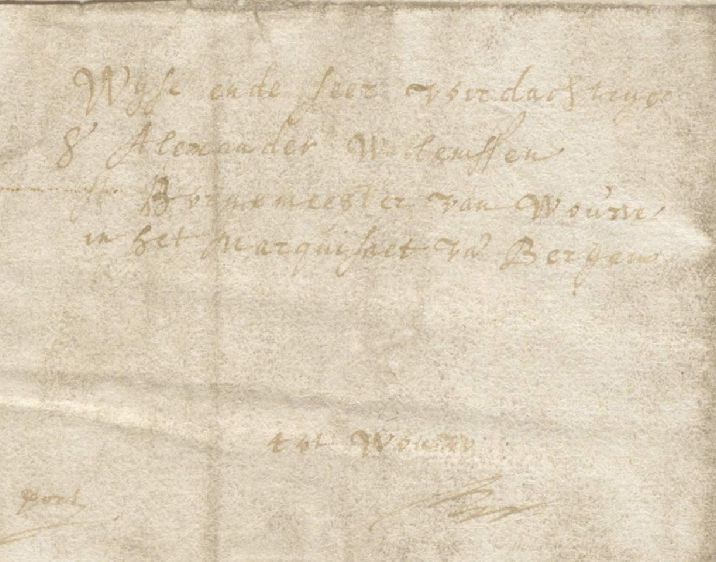 Wyse ende seer voirdachtige
Sr Alexander Willemssen
Borgemeester van Wouwe
in het Marquisaet van Bergen
tot Wouw
port